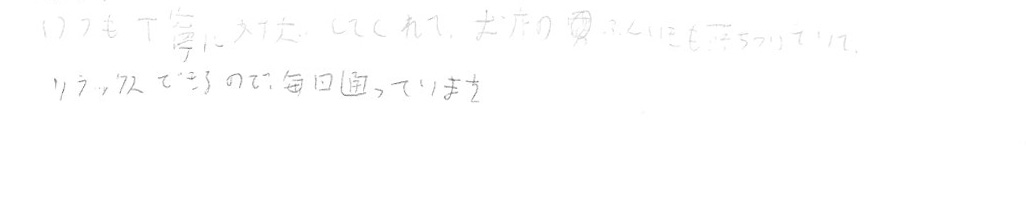 いつも丁寧に対応してくれて、お店の雰ふんいきも落ちついていて、
リラックスできるので、毎回通っています